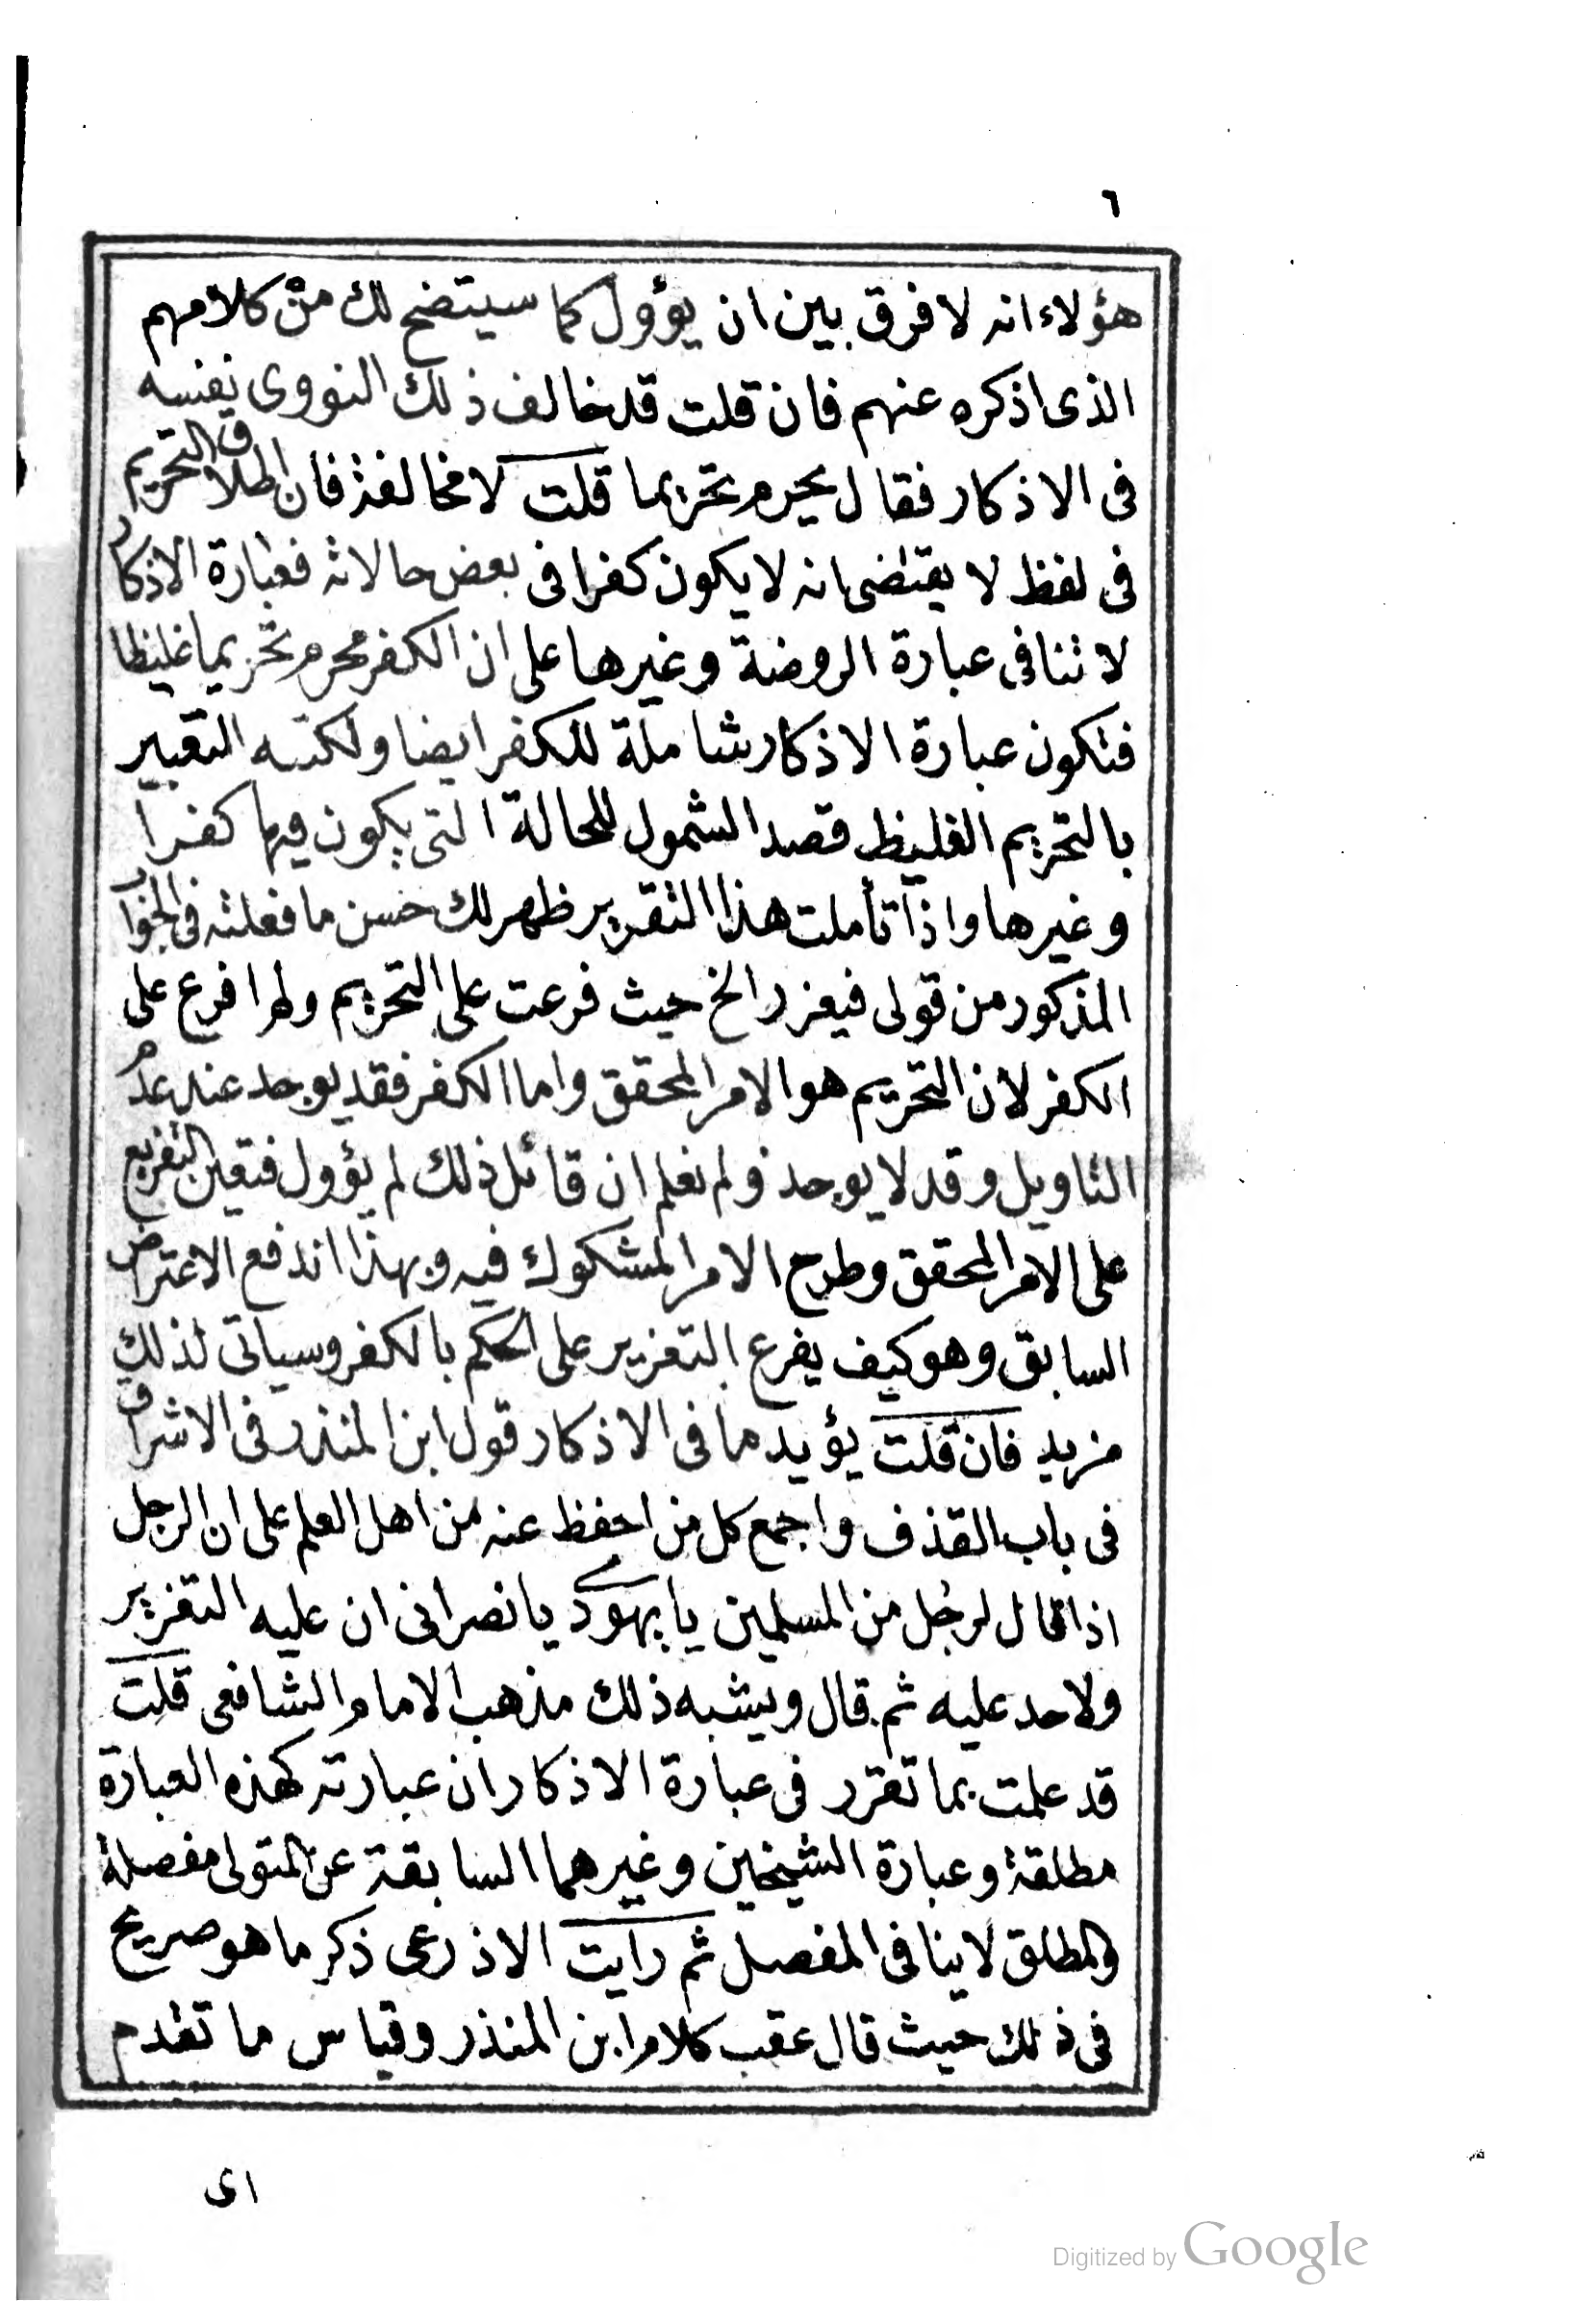 ٦
هؤلاء انه لا فرق بين ان يؤول كما سيتضح لك من كلامهم
الذى اذكره عنهم فان قلت قد خالف ذلك النووى نفسه
فى الاذكار فقال يحرم تحريما قلت لا مخالفة فان اطلاق التحريم
فى لفظ لا يقتضى انه لا يكون كفرا فى بعض حالاته فعبارة الاذكار
لا تنافى عبارة الروضة وغيرها على ان الكفر محرم تحريما غليظا
فتكون عبارة الاذكار شاملة للكفر ايضا ولكنه التعبير
بالتحريم الغليظ قصد الشمول للحالة التى يكون فيها كفرا
وغيرها واذا تأملت هذا التقرير ظهر لك حسن ما فعلته فى الجواب
المذكور من قولى فيعزر الخ حيث فرعت على التحريم ولم افرع على
الكفر لان التحريم هو الامر المحقق واما الكفر فقد يوجد عند عدم
التاويل وقد لا يوجد ولم نعلم ان قائل ذلك لم يؤول فتعين التفريع
على الامر المحقق وطرح الامر المشكوك فيه وبهذا اندفع الاعتراض
السابق وهو كيف يفرع التعزير على الحكم بالكفر وسياتى لذلك
مزيد فان قلت يؤيد ما فى الاذكار قول ابن المنذر فى الاشراف
فى باب القذف واجمع كل من احفظ عنه من اهل العلم على ان الرجل
اذا قال لرجل من المسلمين يا يهودى يا نصرانى ان عليه التعزير
ولا حد عليه ثم قال ويشبه ذلك مذهب الامام الشافعى قلت
قد علمت بما تقرر فى عبارة الاذكار ان عبارته كهذه العبارة
مطلقة وعبارة الشيخين وغيرهما السابقة عن المتولى مفصلة
والمطلق لا ينافى المفصل ثم رايت الاذرعى ذكر ما هو صريح
فى ذلك حيث قال عقب كلام ابن المنذر وقياس ما تقدم
اى
Digitized by Google